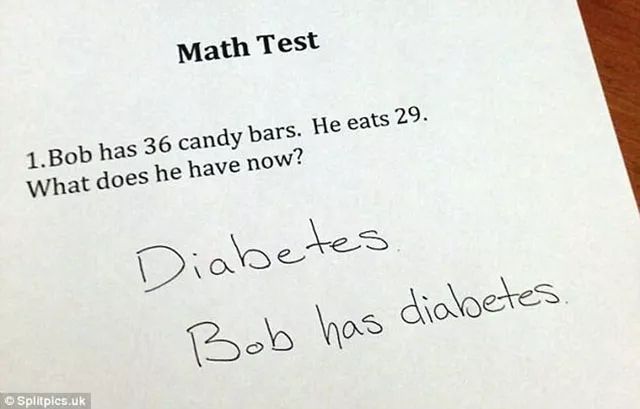 Math Test
1.Bob has 36 candy bars. He eats 29.
What does he have now?
Diabetes.
Bob has diabetes.
© Splitpics.uk